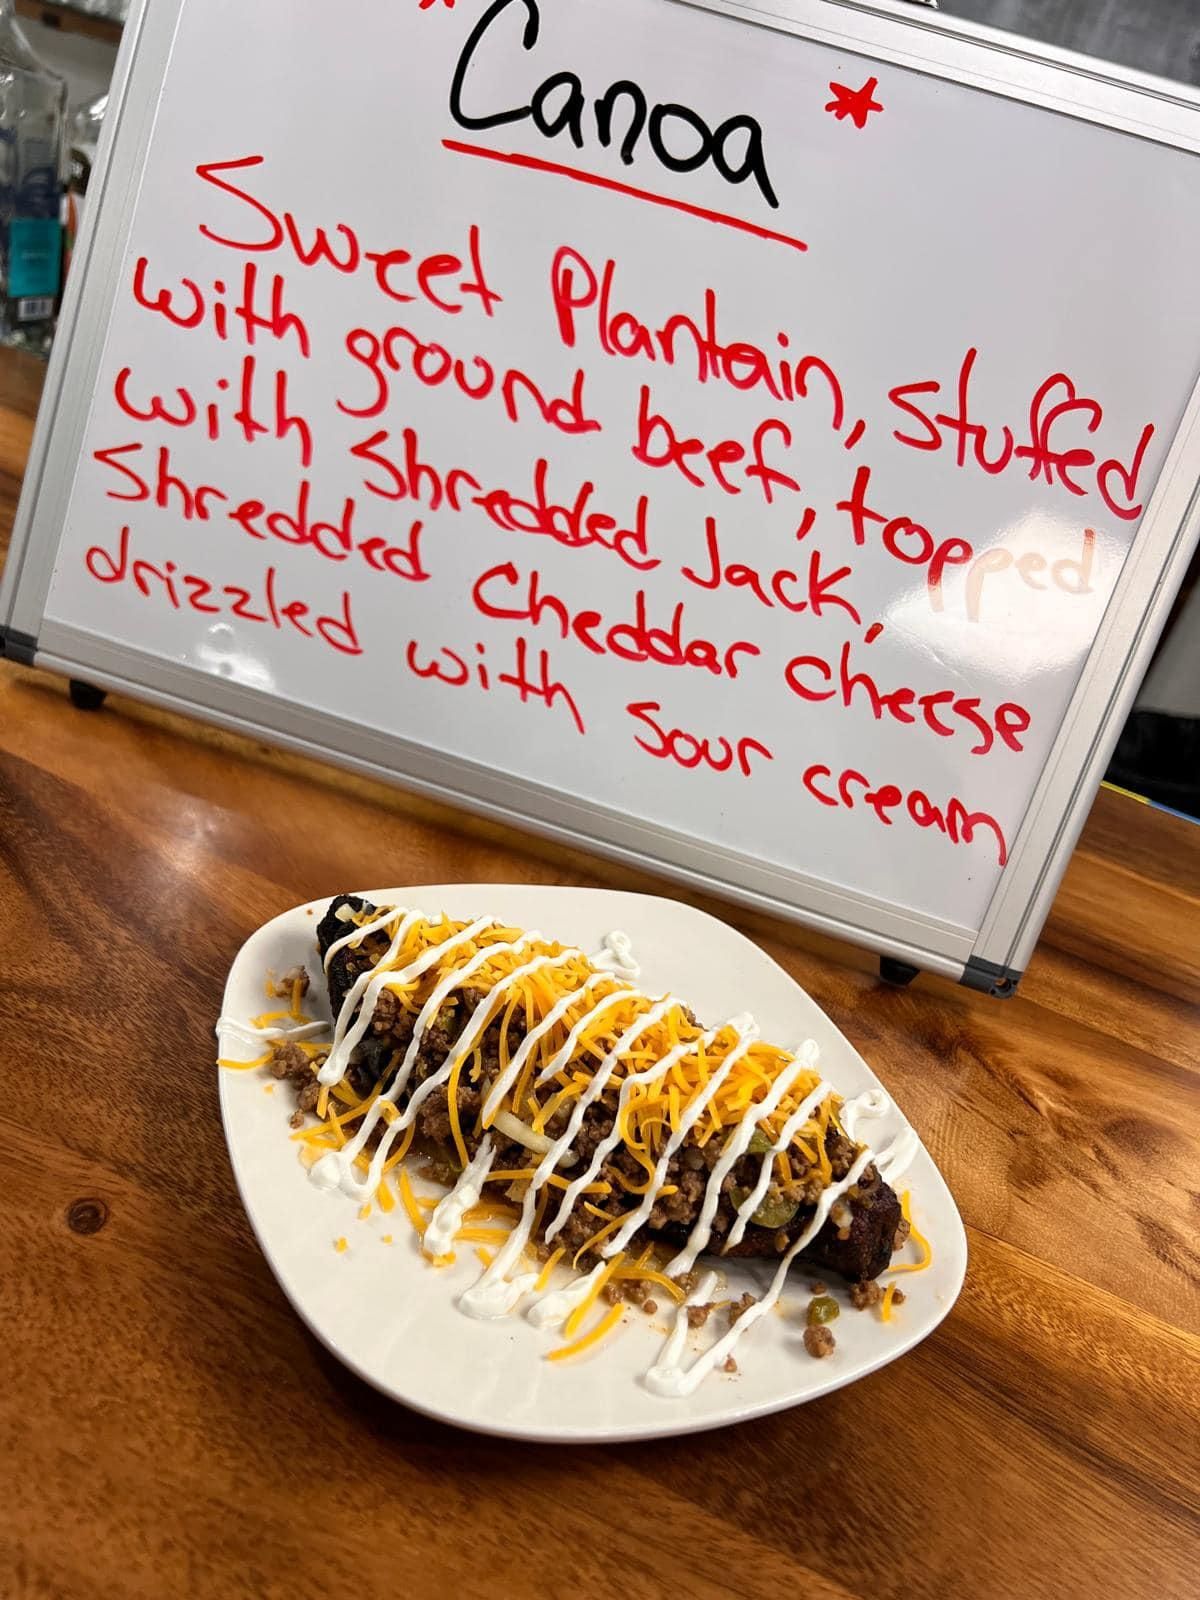 Canoa
Sweet Plantain, stuffed
with ground beef, topped
with shredded Jack,
shredded Cheddar cheese
drizzled with sour cream